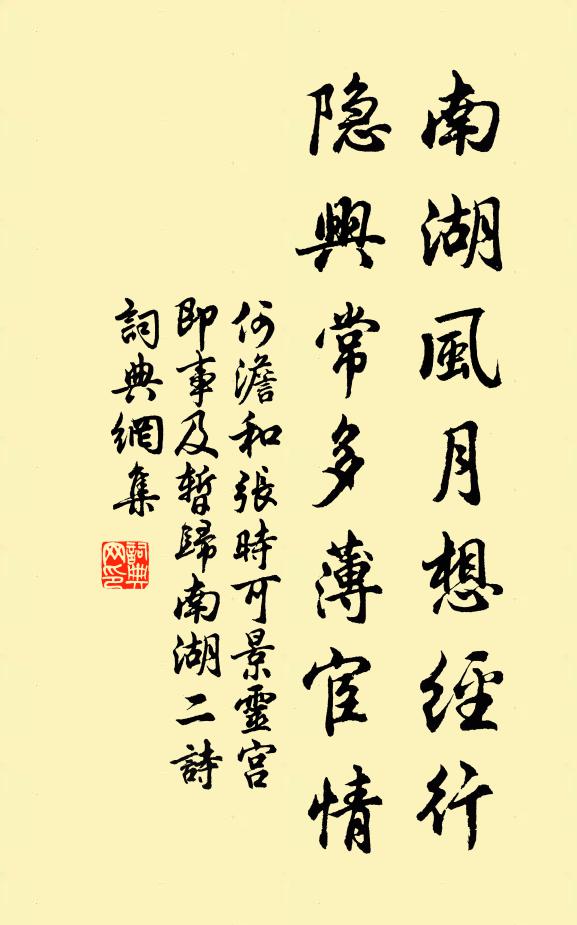 南湖風月想經行
隐興常多薄宦情
何澹和張時可景靈宮
即事及暫歸南湖二詩
詞典網集
詞典网印